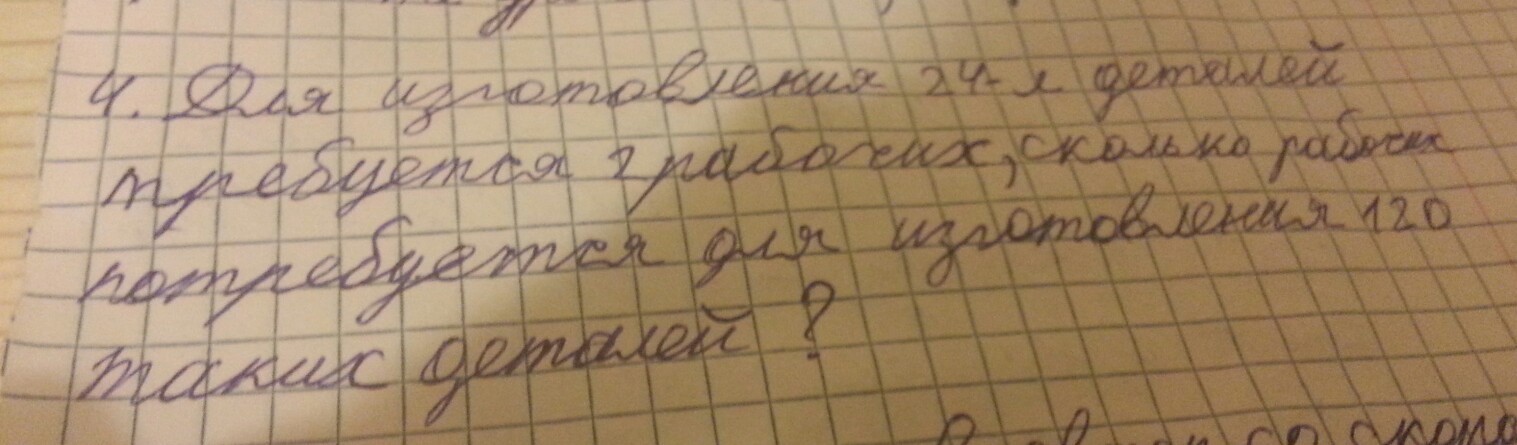 4. Для изготовления 24-х деталей
требуется 2 рабочих, сколько рабочих
потребуется для изготовления 120
таких деталей?